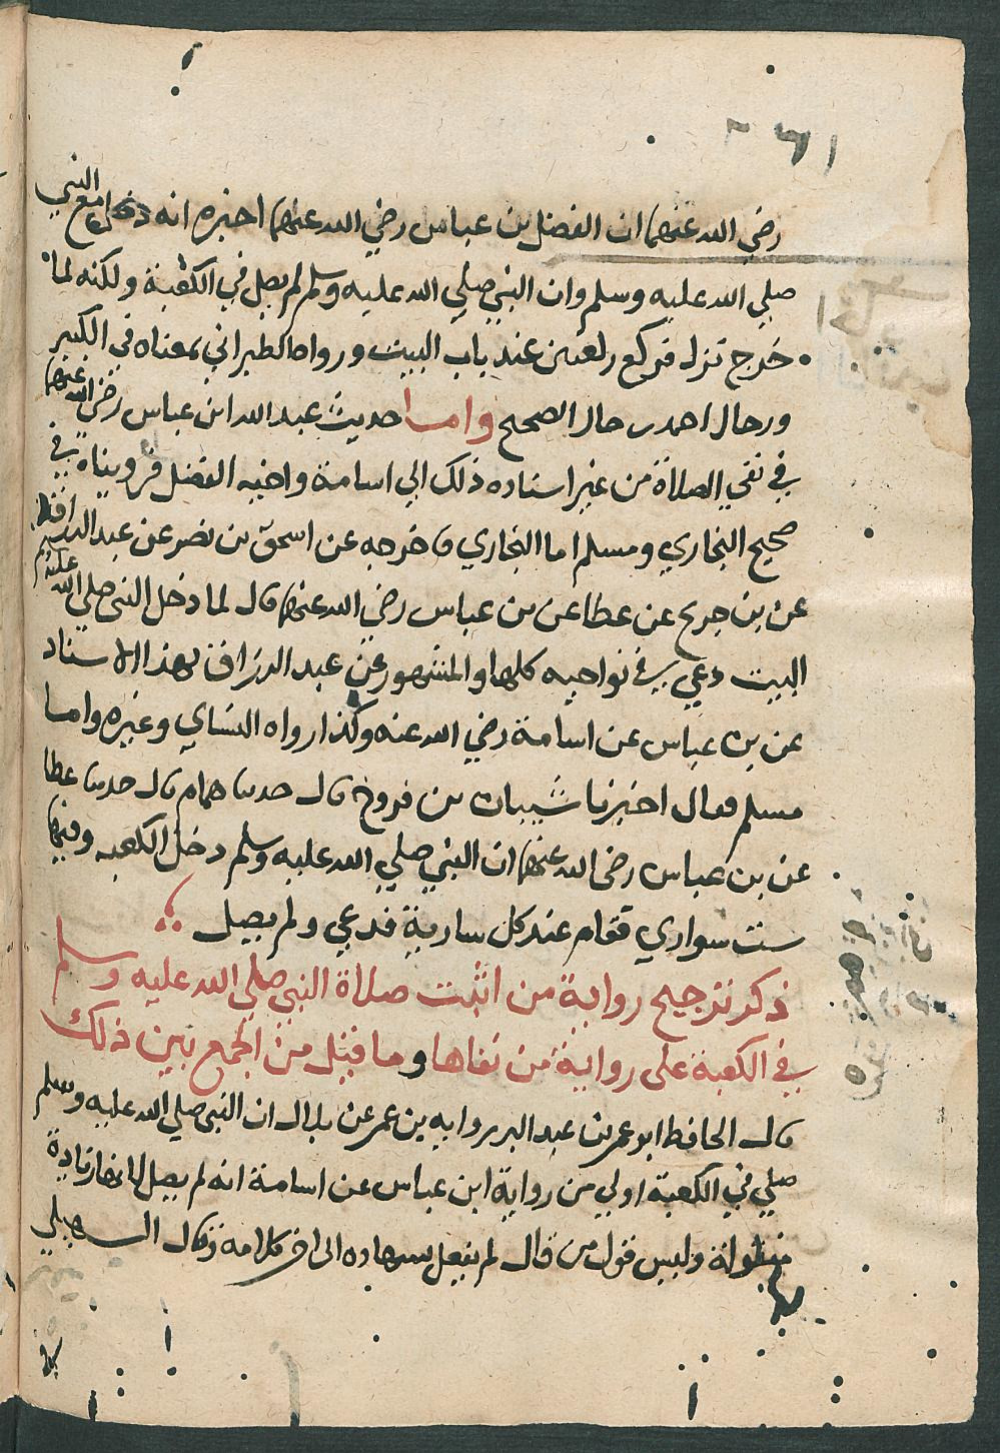 رضي الله عنهما ان الفضل بن عباس رضي الله عنهما اخبره انه دخل مع النبي
صلي الله عليه وسلم وان النبي صلي الله عليه وسلم لم يصل في الكعبة ولكنه لما
خرج نزل فركع ركعتين عند باب البيت ورواه الطبراني بمعناه في الكبير
ورجال احمد رجال الصحيح واما حديث عبد الله ابن عباس رضي الله عنهما
في نفي الصلاة من غير اسناده ذلك الي اسامة واخيه الفضل فرويناه في
صحيح البخاري ومسلم اما البخاري فاخرجه عن اسحق بن نصر عن عبد الرزاق
عن بن جريج عن عطا عن بن عباس رضي الله عنهما قال لما دخل النبي صلي الله عليه وسلم
البيت دعي في نواحيه كلها والمشهور عن عبد الرزاق بهذا الاسناد
عن بن عباس عن اسامة رضي الله عنه وكذا رواه النساي وغيره واما
مسلم فقال اخبرنا شيبان بن فروخ قال حدثنا همام قال حدثنا عطا
عن بن عباس رضي الله عنهما ان النبي صلي الله عليه وسلم دخل الكعبه وفيها
ست سواري فقام عند كل سارية فدعي ولم يصل
ذكر ترجيح رواية من اثبت صلاة النبي صلي الله عليه وسلم
في الكعبة على رواية من نفاها وما قيل من الجمع بين ذلك
قال الحافظ ابو عمر بن عبد البر رواية بن عمر عن بلال ان النبي صلي الله عليه وسلم
صلي في الكعبة اولي من رواية ابن عباس عن اسامة انه لم يصل لانها زيادة
مقبولة وليس قول من قال لم يفعل بشهادة الى اخر كلامه وقال السهيلي